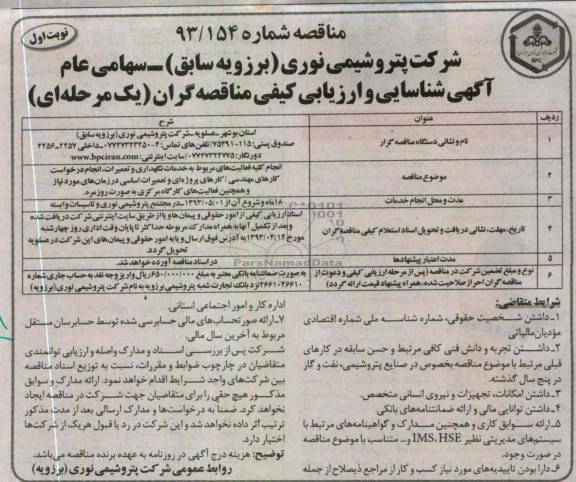 نوبت اول
مناقصه شماره ۹۳/۱۵۴
شرکت پتروشیمی نوری (برزویه سابق) ـ سهامی عام
آگهی شناسایی و ارزیابی کیفی مناقصه گران (یک مرحله‌ای)
BPC
ردیف عنوان شرح
۱ نام و نشانی دستگاه مناقصه گزار
استان بوشهر ـ عسلویه ـ شرکت پتروشیمی نوری (برزویه سابق)
صندوق پستی: ۱۱۵-۷۵۳۹۱ / تلفن های تماس: ۴-۰۷۷۲۷۳۲۳۲۵۰ ـ داخلی ۲۲۵۷ - ۲۲۵۶
دورنگار: ۰۷۷۲۷۳۲۴۷۷۵ / سایت اینترنتی: www.bpciran.com
۲ موضوع مناقصه
انجام کلیه فعالیت‌های مربوط به خدمات نگهداری و تعمیرات، انجام درخواست
کارهای مهندسی / کارهای پروژه‌ای و تعمیرات اساسی در زمان‌های مورد نیاز
و همچنین فعالیت‌های کارگاه مرکزی به صورت روزمره.
۳ مدت و محل انجام خدمات
۱۸ ماه و شروع آن از ۱۳۹۳/۰۵/۰۱ ـ در مجتمع پتروشیمی نوری و تاسیسات وابسته
۴ تاریخ، مهلت، نشانی دریافت و تحویل اسناد استعلام کیفی مناقصه گران
اسناد ارزیابی کیفی از امور حقوقی و پیمان ها و یا از طریق سایت اینترنتی شرکت دریافت شده
و بعد از تکمیل آنها به همراه مدارک مربوطه حداکثر تا پایان وقت اداری روز چهارشنبه
مورخ ۱۳۹۳/۰۳/۱۴ به آدرس فوق ارسال و یا به امور حقوقی و پیمان‌های این شرکت در عسلویه
تحویل گردد.
۵ مدت اعتبار پیشنهادها
در اسناد مناقصه آورده خواهد شد.
۶ نوع و مبلغ تضمین شرکت در مناقصه (پس از مرحله ارزیابی کیفی و دعوت از
مناقصه گران احراز صلاحیت شده، همراه پیشنهاد قیمت ارائه گردد)
به صورت ضمانتنامه بانکی معتبر به مبلغ ۶۵۰/۰۰۰/۰۰۰ ریال و یا واریز وجه نقد به حساب جاری شماره
۲۶۶۱۰۴۶۶۱۰ نزد بانک تجارت شعبه پتروشیمی برزویه به نام شرکت پتروشیمی نوری (برزویه)
ParsNamadData
شرایط متقاضی:
۱ـ داشتن شخصیت حقوقی، شماره شناسه ملی شماره اقتصادی
مؤدیان مالیاتی
۲ـ داشتن تجربه و دانش فنی کافی مرتبط و حسن سابقه در کارهای
قبلی مرتبط با موضوع مناقصه بخصوص در صنایع پتروشیمی، نفت و گاز
در پنج سال گذشته.
۳ـ داشتن امکانات، تجهیزات و نیروی انسانی متخصص.
۴ـ داشتن توانایی مالی و ارائه ضمانتنامه های بانکی.
۵ـ ارائه سوابق کاری و همچنین مدارک و گواهینامه های مرتبط با
سیستم‌های مدیریتی نظیر IMS، HSE و... متناسب با موضوع مناقصه
در صورت وجود.
۶ـ دارا بودن تاییدیه‌های مورد نیاز کسب و کار از مراجع ذیصلاح از جمله
اداره کار و امور اجتماعی استانی.
۷ـ ارائه صورتحساب‌های مالی حسابرسی شده توسط حسابرسان مستقل
مربوط به آخرین سال مالی.
شرکت پس از بررسی اسناد و مدارک واصله و ارزیابی توانمندی
متقاضیان در چارچوب ضوابط و مقررات، نسبت به توزیع اسناد مناقصه
بین شرکت‌های واجد شرایط اقدام خواهد نمود. ارائه مدارک و سوابق
مذکور هیچ حقی را برای متقاضیان جهت شرکت در مناقصه ایجاد
نخواهد کرد. ضمناً به درخواست‌ها و مدارک ارسالی بعد از مدت مذکور
ترتیب اثر داده نخواهد شد و این شرکت در رد یا قبول هریک از شرکت‌ها
اختیار دارد.
توضیح: هزینه درج آگهی در روزنامه به عهده برنده مناقصه می‌باشد.
روابط عمومی شرکت پتروشیمی نوری (برزویه)